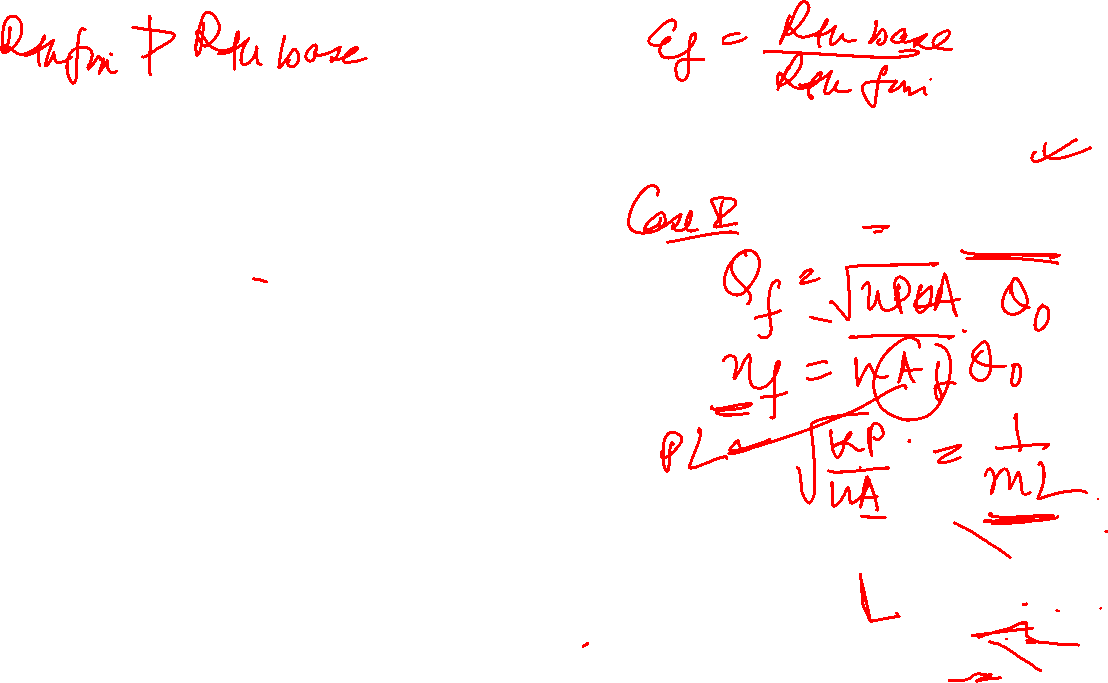 Rth fin > Rth base
εf = Rth base / Rth fin
Case I
Qf = √hPkA θ0
ηf = hAf θ0
PL
√kP / hA = 1 / mL
L